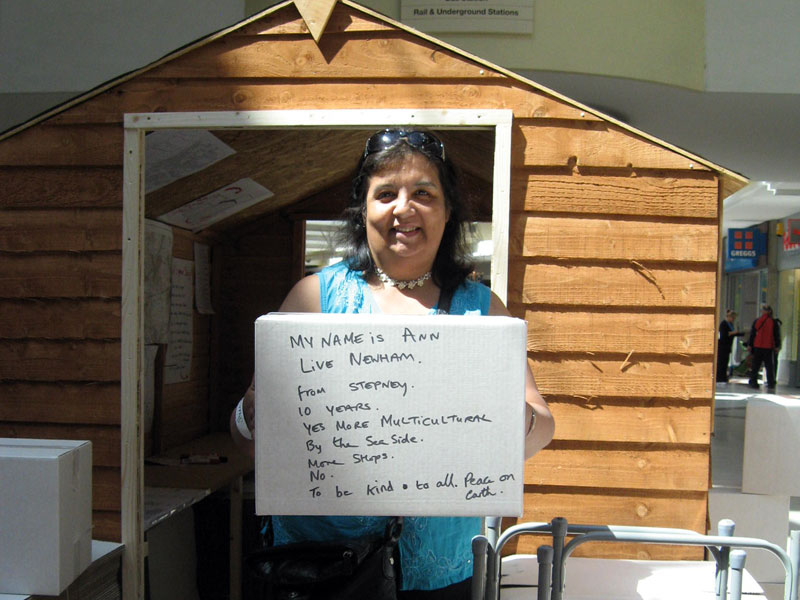 Rail & Underground Stations
GREGGS
MY NAME IS ANN
LIVE NEWHAM.
from STEPNEY.
10 YEARS.
YES MORE MULTICULTURAL
By the Sea Side.
More Shops.
No.
To be kind to all. Peace on
earth.